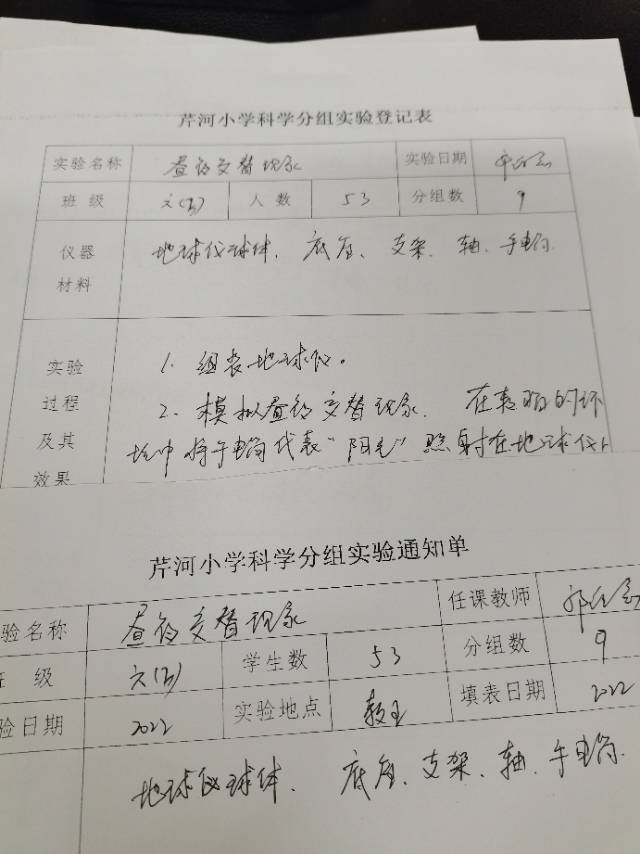 芹河小学科学分组实验登记表
实验名称 昼夜交替现象 实验日期
班 级 六(3) 人 数 53 分组数 9
仪器 地球仪球体、底座、支架、轴、手电筒
材料
实验 1. 组装地球仪。
过程 2. 模拟昼夜交替现象. 在较暗的环
及其 境中将手电筒代表“阳光”照射在地球仪上
效果
芹河小学科学分组实验通知单
验名称 昼夜交替现象 任课教师
班 级 六(3) 学生数 53 分组数 9
验日期 2022 实验地点 教室 填表日期 2022
地球仪球体、底座、支架、轴、手电筒